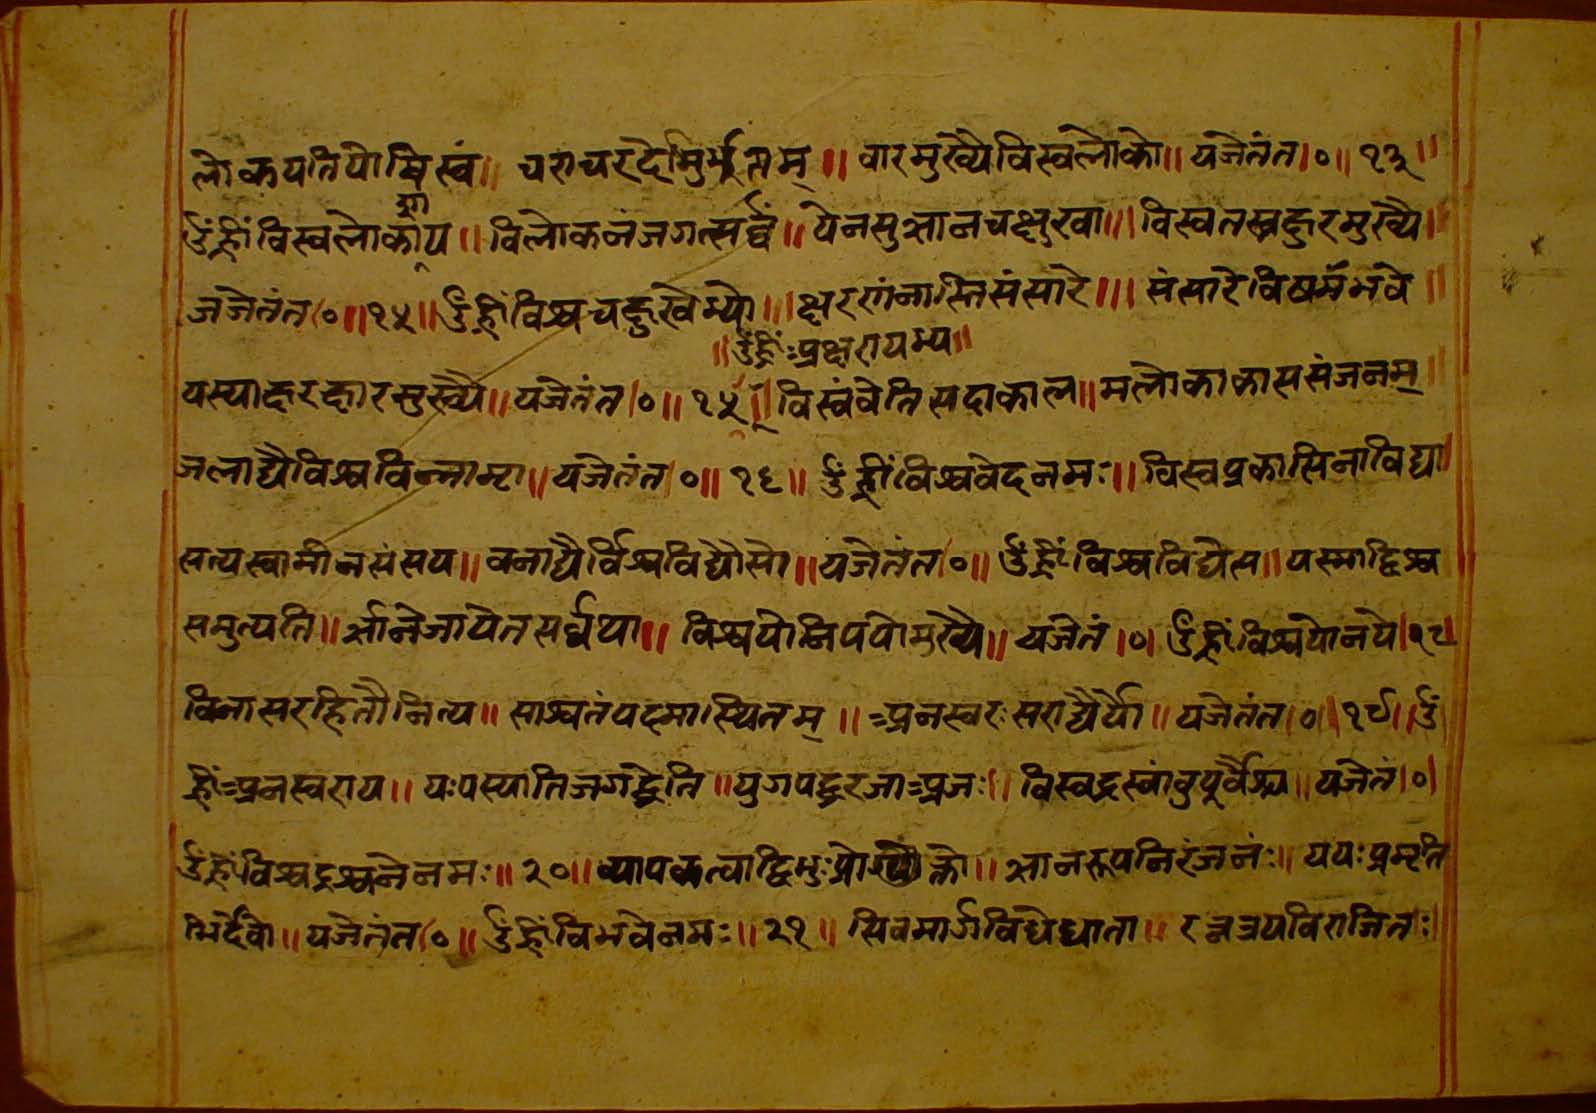 लोकयतिपोषिस्वं॥ चराचरदेमुर्मूतम्॥ वारमुख्यैविस्वलोको॥ यजेतंत।०॥ १३॥
उँह्रींविस्वलोकाय॥ विलोकनंजगत्सर्व्वं॥ येनसुज्ञानचक्षुरवा॥ विस्वतस्चक्षुरमुख्यै॥
जजेतंत।०॥१५॥ उँह्रींविश्वचक्षुखेम्यो॥ क्षरणंनास्तिसंसारे॥ संसारेविषमंभवे॥
॥उँह्रींःप्रक्षरायम्य॥
यस्याक्षरक्षारमुख्यै॥ यजेतंत।०॥ १५॥ विस्वंवेतिसदाकाल॥ मलोकाकाससंजनम्॥
जलाद्यैविश्वविन्नाम्रा॥ यजेतंत।०॥ १६॥ उँह्रींविश्ववेदनमः॥ विस्वप्रकासिनाविद्या
सत्यस्वामीनसंसय॥ वनाद्यैर्विश्वविद्यौसो॥ यजेतंत।०॥ उँह्रींविश्वविद्येत्स॥ यस्माद्विश्व
समुत्पति॥ र्ज्ञानेजायेतसर्व्वथा॥ विश्वयोनिपयोमुख्यै॥ यजेतं।०। उँह्रींविश्वयोनये।१८
विनासरहितौनित्य॥ साश्वतंपदमास्थितम्॥ =प्रनस्वरःसराद्यैर्यो॥ यजेतंत।०।१९॥उँ
ह्रीं=प्रनस्वराय॥ यःपस्यातिजगद्वेति॥ युगपद्वरजा=प्रजः॥ विस्वद्रस्वांवुपूर्वैश्च॥ यजेतं।०।
उँह्रींविश्वद्रश्वनेनमः॥२०॥ व्यापकत्वाद्विभुःप्रोक्तो॥ ज्ञानरूपनिरंजनंः॥ ययःप्रमृति
भिर्देवो॥ यजेतंत।०॥ उँह्रींविभवेनमः॥२१॥ सिवमार्गविधेधाता॥ रत्नत्रयविराजितः॥